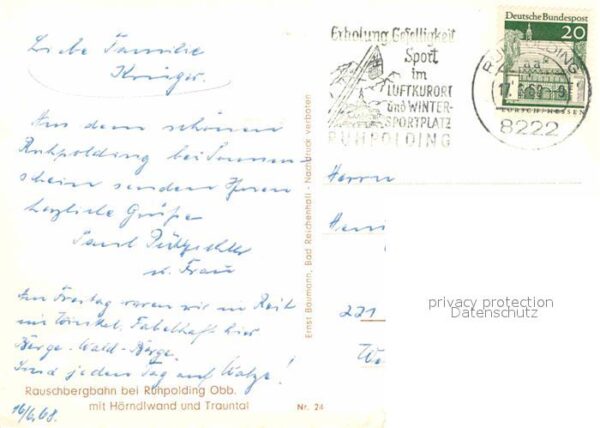 Liebe Familie
Krüger.
Aus dem schönen
Ruhpolding bei Sonnen
schein senden Ihnen
herzliche Grüße
Paul
u. Frau
Am Freitag waren wir in Reit
im Winkel. Fabelhaft hier
Berge-Wald-Berge.
Sind jeden Tag auf Walze!
16/6.68.
Rauschbergbahn bei Ruhpolding Obb.
mit Hörndlwand und Trauntal
Nr. 24
Ernst Baumann, Bad Reichenhall - Nachdruck verboten
Erholung Geselligkeit
Sport
im
LUFTKURORT
und WINTER-
SPORTPLATZ
RUHPOLDING
Deutsche Bundespost
20
LORSCH/HESSEN
RUHPOLDING
17.6.68
8222
Herrn
221
privacy protection
Datenschutz